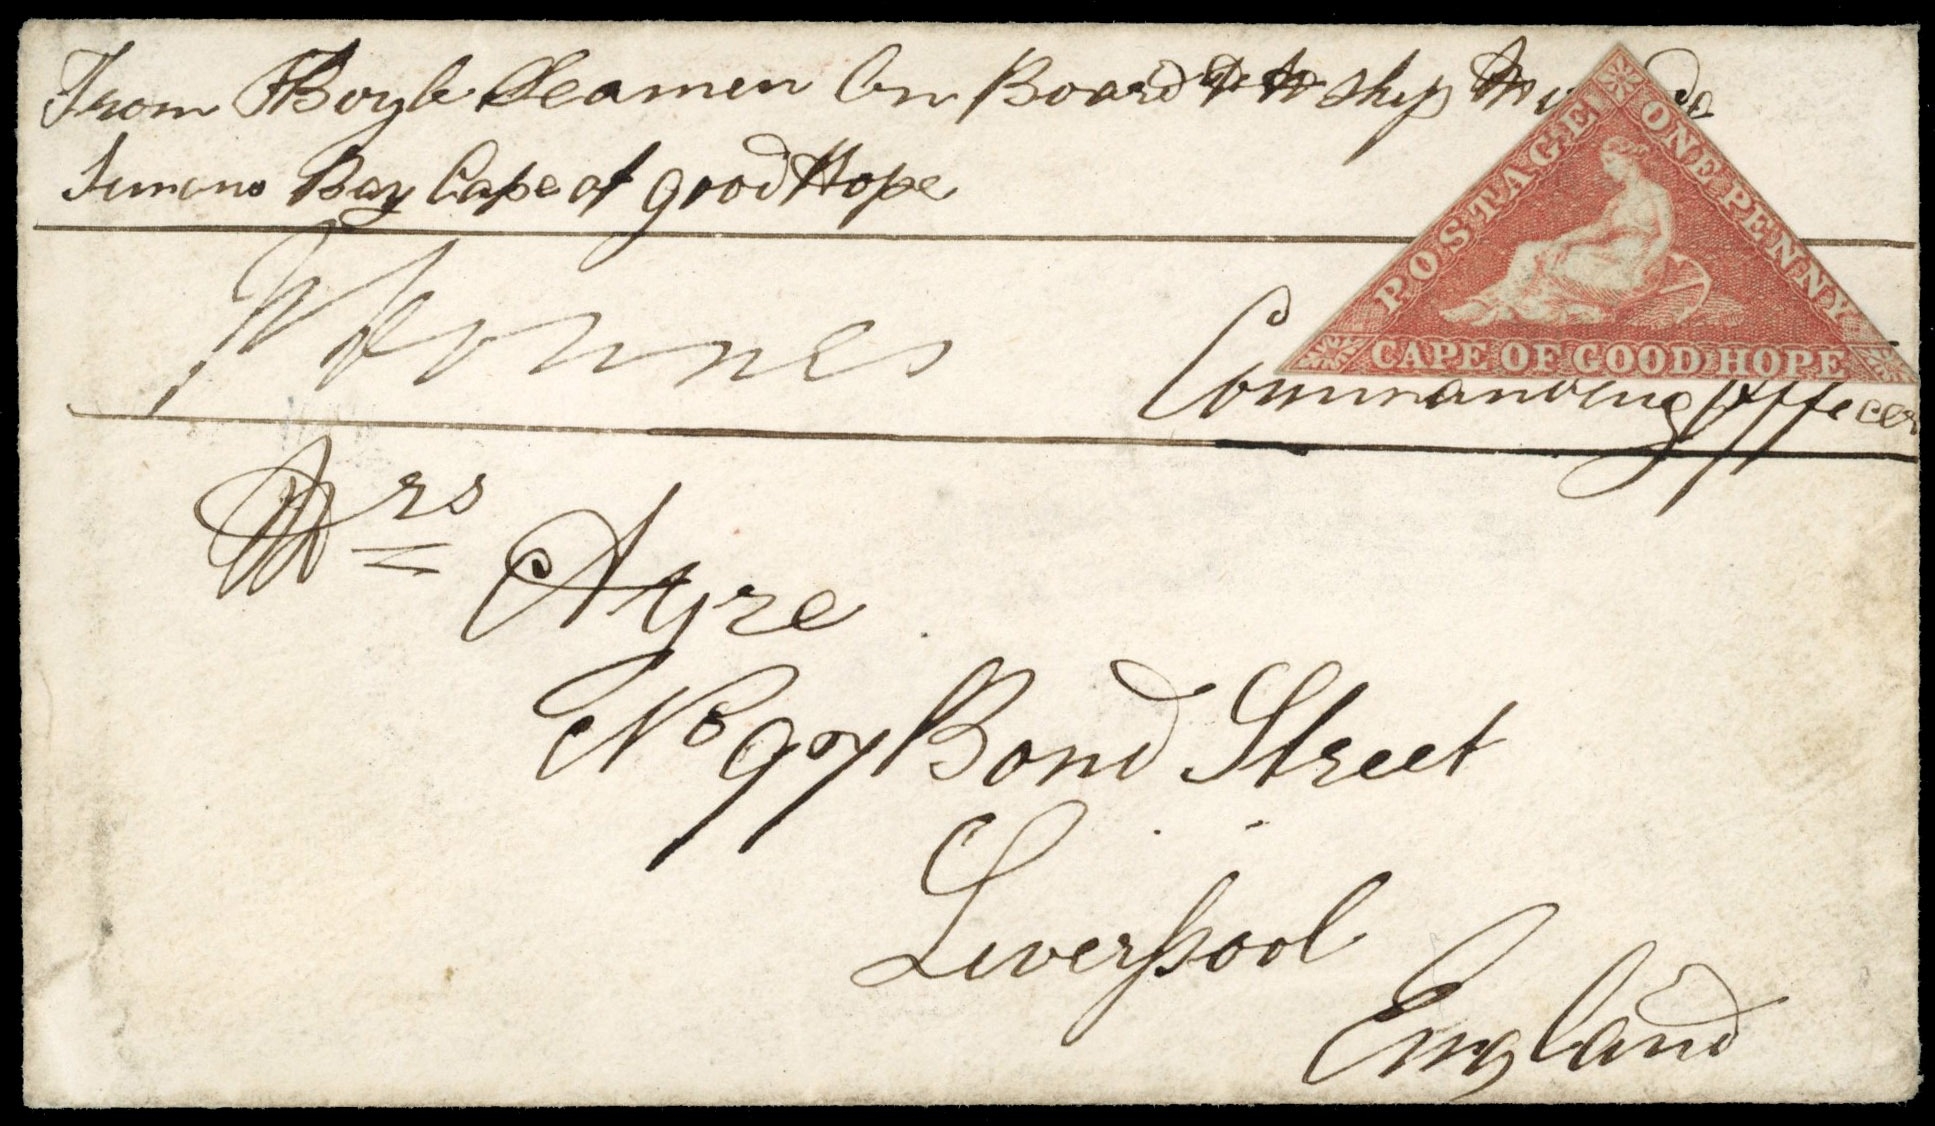 From Boyle Seamen On Board ship
Simons Bay Cape of good Hope
POSTAGE
ONE PENNY
CAPE OF GOOD HOPE
Commanding Officer
Mrs
Ayre
No 97 Bond Street
Liverpool
England